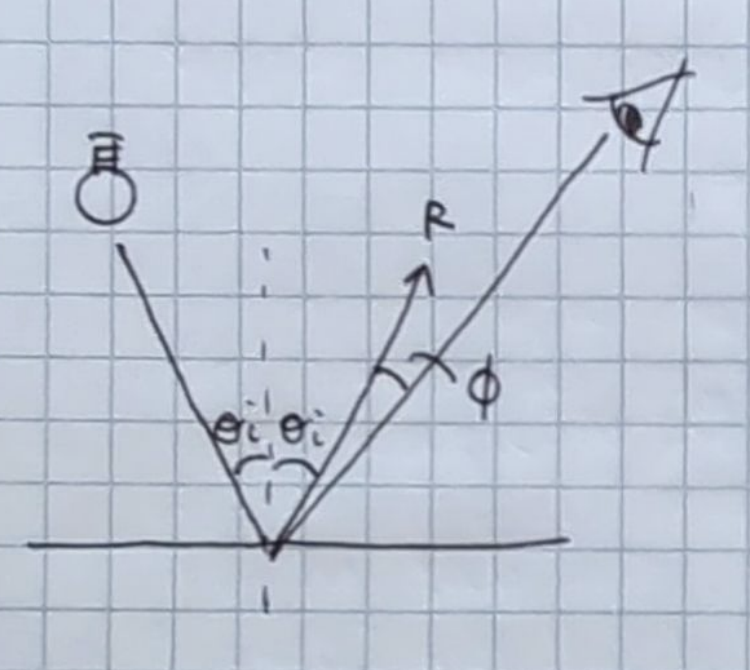 R
θi θi
ϕ